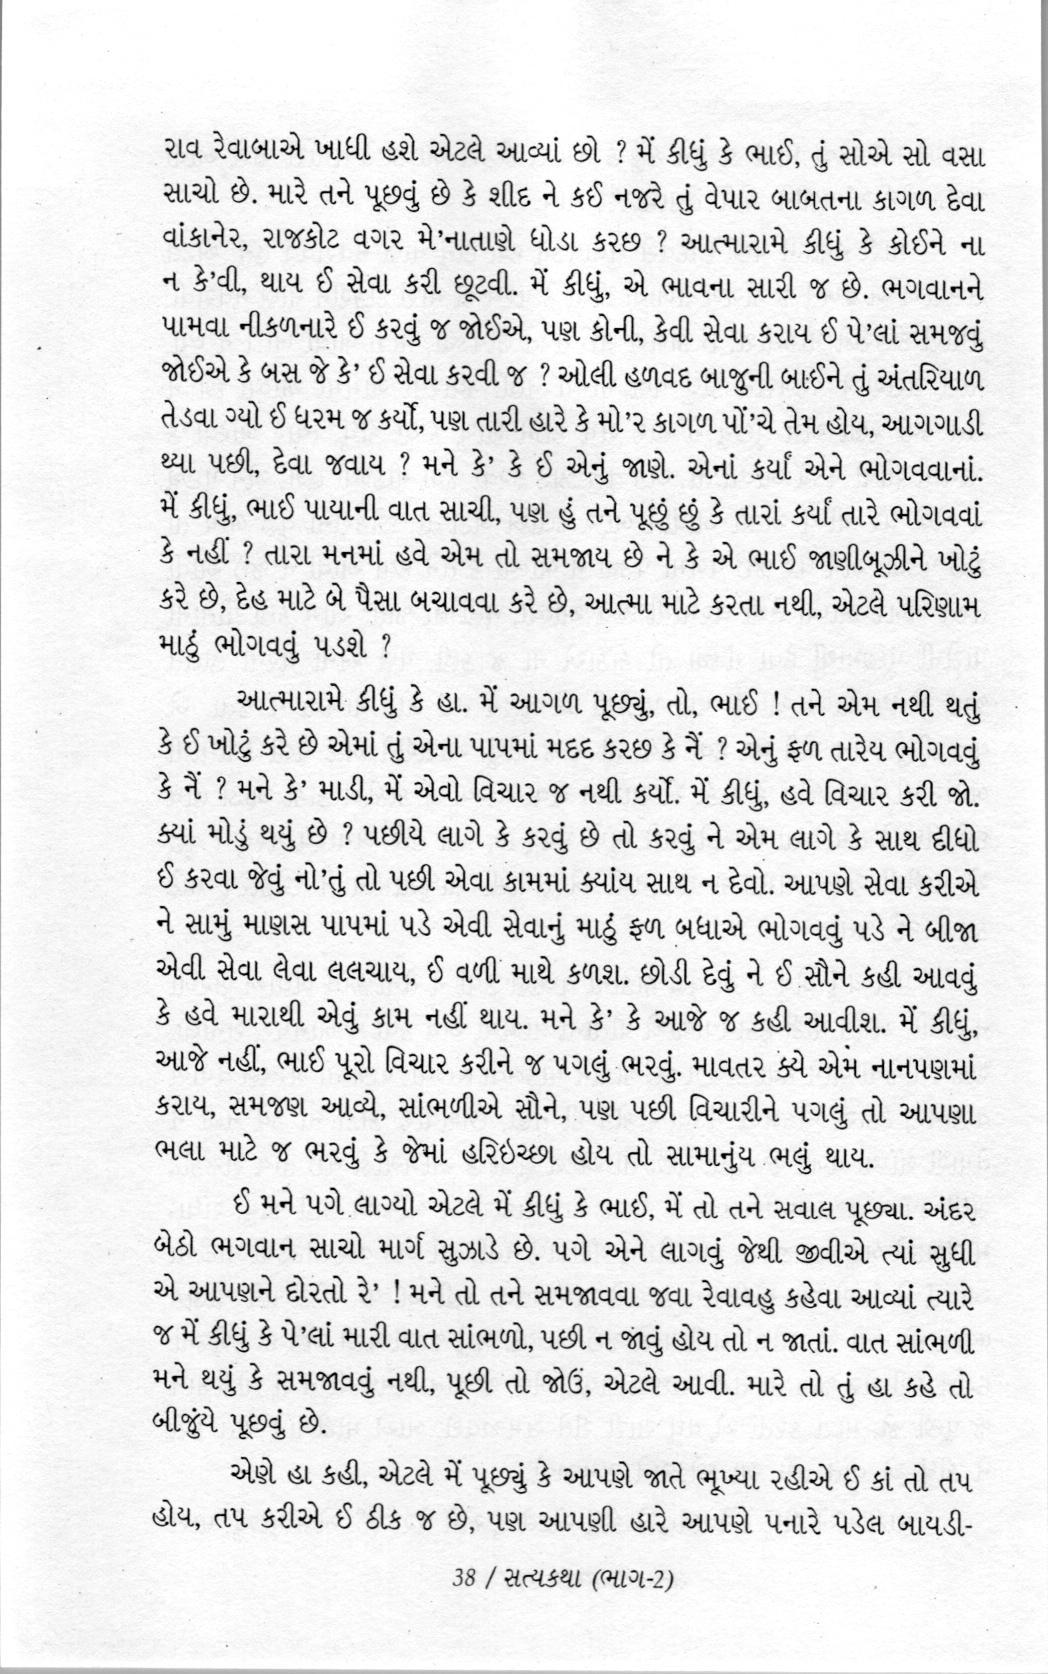 રાવ રેવાબાએ ખાધી હશે એટલે આવ્યાં છો ? મેં કીધું કે ભાઈ, તું સોએ સો વસા
સાચો છે. મારે તને પૂછવું છે કે શીદ ને કઈ નજરે તું વેપાર બાબતના કાગળ દેવા
વાંકાનેર, રાજકોટ વગર મે'નાતાણે ધોડા કરછ ? આત્મારામે કીધું કે કોઈને ના
ન કે'વી, થાય ઈ સેવા કરી છૂટવી. મેં કીધું, એ ભાવના સારી જ છે. ભગવાનને
પામવા નીકળનારે ઈ કરવું જ જોઈએ, પણ કોની, કેવી સેવા કરાય ઈ પે'લાં સમજવું
જોઈએ કે બસ જે કે' ઈ સેવા કરવી જ ? ઓલી હળવદ બાજુની બાઈને તું અંતરિયાળ
તેડવા ગ્યો ઈ ધરમ જ કર્યો, પણ તારી હારે કે મો'ર કાગળ પોં'ચે તેમ હોય, આગગાડી
થ્યા પછી, દેવા જવાય ? મને કે' કે ઈ એનું જાણે. એનાં કર્યાં એને ભોગવવાનાં.
મેં કીધું, ભાઈ પાયાની વાત સાચી, પણ હું તને પૂછું છું કે તારાં કર્યાં તારે ભોગવવાં
કે નહીં ? તારા મનમાં હવે એમ તો સમજાય છે ને કે એ ભાઈ જાણીબૂઝીને ખોટું
કરે છે, દેહ માટે બે પૈસા બચાવવા કરે છે, આત્મા માટે કરતા નથી, એટલે પરિણામ
માઠું ભોગવવું પડશે ?
આત્મારામે કીધું કે હા. મેં આગળ પૂછ્યું, તો, ભાઈ ! તને એમ નથી થતું
કે ઈ ખોટું કરે છે એમાં તું એના પાપમાં મદદ કરછ કે નૈં ? એનું ફળ તારેય ભોગવવું
કે નૈં ? મને કે' માડી, મેં એવો વિચાર જ નથી કર્યો. મેં કીધું, હવે વિચાર કરી જો.
ક્યાં મોડું થયું છે ? પછીયે લાગે કે કરવું છે તો કરવું ને એમ લાગે કે સાથ દીધો
ઈ કરવા જેવું નો'તું તો પછી એવા કામમાં ક્યાંય સાથ ન દેવો. આપણે સેવા કરીએ
ને સામું માણસ પાપમાં પડે એવી સેવાનું માઠું ફળ બધાએ ભોગવવું પડે ને બીજા
એવી સેવા લેવા લલચાય, ઈ વળી માથે કળશ. છોડી દેવું ને ઈ સૌને કહી આવવું
કે હવે મારાથી એવું કામ નહીં થાય. મને કે' કે આજે જ કહી આવીશ. મેં કીધું,
આજે નહીં, ભાઈ પૂરો વિચાર કરીને જ પગલું ભરવું. માવતર ક્યે એમ નાનપણમાં
કરાય, સમજણ આવ્યે, સાંભળીએ સૌને, પણ પછી વિચારીને પગલું તો આપણા
ભલા માટે જ ભરવું કે જેમાં હરિઇચ્છા હોય તો સામાનુંય ભલું થાય.
ઈ મને પગે લાગ્યો એટલે મેં કીધું કે ભાઈ, મેં તો તને સવાલ પૂછ્યા. અંદર
બેઠો ભગવાન સાચો માર્ગ સુઝાડે છે. પગે એને લાગવું જેથી જીવીએ ત્યાં સુધી
એ આપણને દોરતો રે' ! મને તો તને સમજાવવા જવા રેવાવહુ કહેવા આવ્યાં ત્યારે
જ મેં કીધું કે પે'લાં મારી વાત સાંભળો, પછી ન જાવું હોય તો ન જાતાં. વાત સાંભળી
મને થયું કે સમજાવવું નથી, પૂછી તો જોઉં, એટલે આવી. મારે તો તું હા કહે તો
બીજુંયે પૂછવું છે.
એણે હા કહી, એટલે મેં પૂછ્યું કે આપણે જાતે ભૂખ્યા રહીએ ઈ કાં તો તપ
હોય, તપ કરીએ ઈ ઠીક જ છે, પણ આપણી હારે આપણે પનારે પડેલ બાયડી-
38 / સત્યકથા (ભાગ-2)